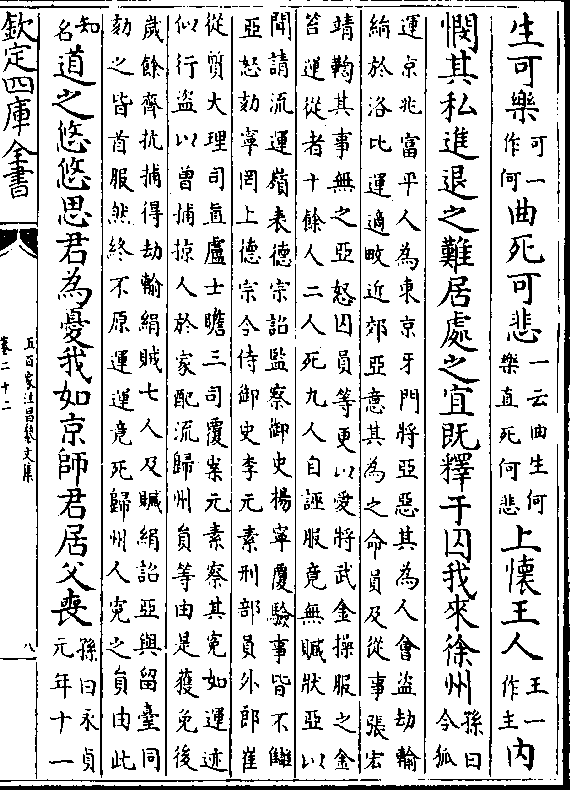 生可樂可一作何曲死可悲一云曲生何樂直死何悲上懷王人王一作主内
憫其私進退之難居處之宜既釋于囚我來徐州孫曰令狐
運京兆富平人為東京牙門將亞惡其為人會盜劫輸
絹於洛北運適畋近郊亞意其為之命員及從事張宏
靖鞫其事無之亞怒囚員等更以愛將武金操服之金
笞運從者十餘人二人死九人自誣服竟無贓狀亞以
聞請流運嶺表德宗詔監察御史楊寧覆驗事皆不讎
亞怒劾寧罔上德宗令侍御史李元素刑部員外郎崔
從質大理司直盧士瞻三司覆案元素察其冤如運迹
似行盜以曾捕掠人於家配流歸州員等由是獲免後
嵗餘齊抗捕得劫輸絹賊七人及贓絹詔亞與留臺同
劾之皆首服然終不原運運竟死歸州人冤之員由此
知名道之悠悠思君為憂我如京師君居父喪孫曰永貞元年十一
欽定四庫全書
五百家注昌黎文集
卷二十二
八